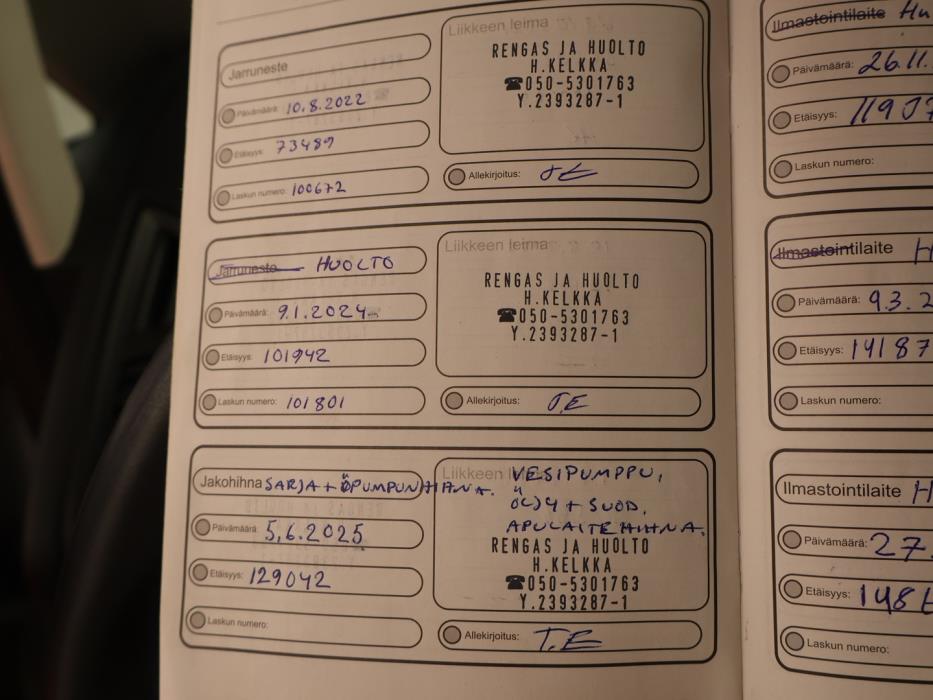 Jarruneste
Päivämäärä: 10.8.2022
Etäisyys: 73489
Laskun numero: 100672
Liikkeen leima
RENGAS JA HUOLTO
H.KELKKA
☎050-5301763
Y.2393287-1
Allekirjoitus:
Jarruneste HUOLTO
Päivämäärä: 9.1.2024
Etäisyys: 101942
Laskun numero: 101801
Liikkeen leima
RENGAS JA HUOLTO
H.KELKKA
☎050-5301763
Y.2393287-1
Allekirjoitus: J.E
Jakohihna SARJA + ÖPUMPUN HIHNA.
Päivämäärä: 5.6.2025
Etäisyys: 129042
Laskun numero:
Liikkeen
VESIPUMPPU,
ÖLJY + SUOD.
APULAITEHIHNA.
RENGAS JA HUOLTO
H.KELKKA
☎050-5301763
Y.2393287-1
Allekirjoitus: T.E
Ilmastointilaite Hu
Päivämäärä: 26.11.
Etäisyys: 11907
Laskun numero:
Ilmastointilaite H
Päivämäärä: 9.3.2
Etäisyys: 14187
Laskun numero:
Ilmastointilaite H
Päivämäärä: 27.
Etäisyys: 148
Laskun numero: